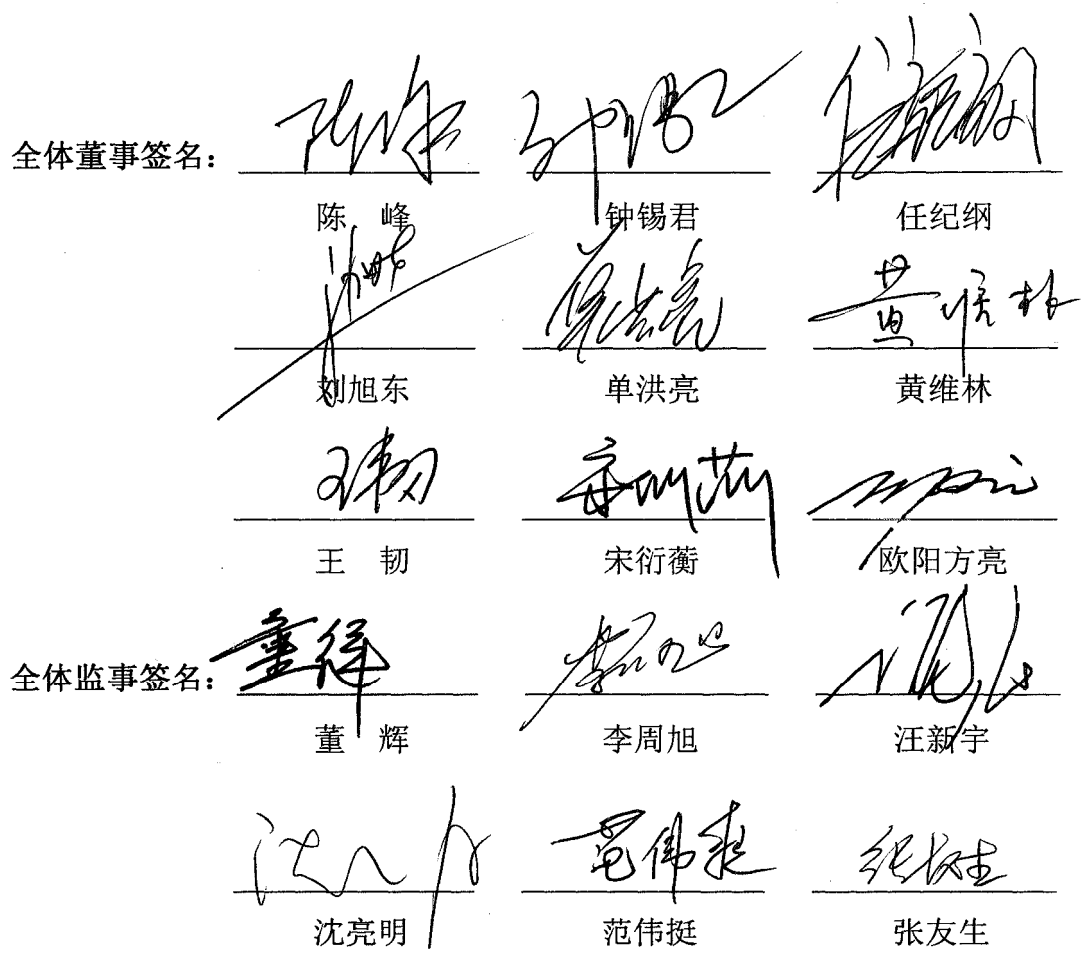 全体董事签名:
陈 峰 钟锡君 任纪纲
刘旭东 单洪亮 黄维林
王 韧 宋衍蘅 欧阳方亮
全体监事签名:
董 辉 李周旭 汪新宇
沈亮明 范伟挺 张友生